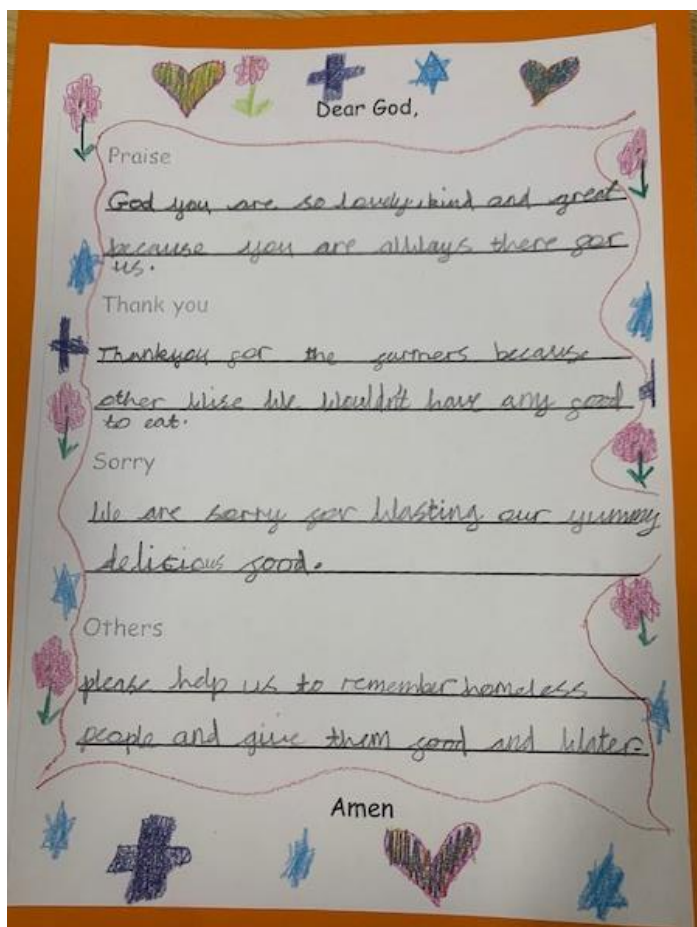 Dear God,
Praise
God you are so lovely, kind and great
because you are allways there for
us.
Thank you
Thankyou for the farmers because
other wise we wouldn't have any food
to eat.
Sorry
We are sorry for wasting our yummy
delicious food.
Others
please help us to remember homeless
people and give them food and water.
Amen